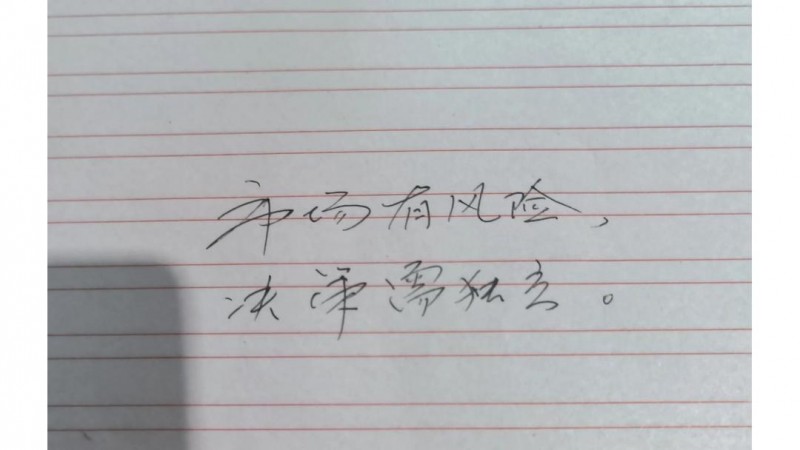 市场有风险，
决策需独立。